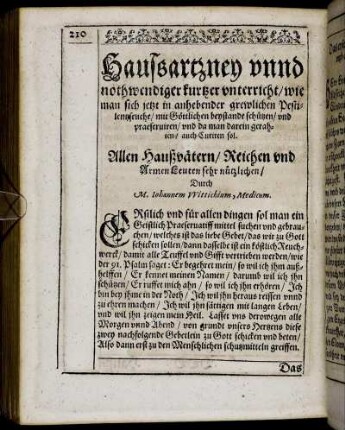 210
Haußartzney vnnd
nothwendiger kurtzer vnterricht / wie
man sich jetzt in anhebender grewlichen Pesti-
lentzseuche / mit Göttlichen beystande schützen / vnd
praeseruiren / vnd da man darein gerah-
ten / auch Curiren sol.
Allen Haußvätern / Reichen vnd
Armen Leuten sehr nützlichen /
Durch
M. Iohannem Wittichium, Medicum.
ERstlich vnd für allen dingen sol man ein
Geistlich Praeseruatiff mittel suchen vnd gebrau-
chen / welches ist das liebe Gebet / das wir zu Gott
schicken sollen / dann dasselbe ist ein köstlich Reuch-
werck / damit alle Teuffel vnd Gifft vertrieben werden / wie
der 91. Psalm saget: Er begehret mein / so wil ich ihm auß-
helffen / Er kennet meinen Namen / darumb wil ich ihn
schützen / Er ruffet mich ahn / so wil ich ihn erhören / Ich
bin bey ihme in der Noth / Ich wil ihn heraus reissen vnnd
zu ehren machen / Ich wil ihn sättigen mit langen Leben /
vnd wil ihn zeigen mein Heil. Lasset vns derowegen alle
Morgen vnnd Abend / von grundt vnsers Hertzens diese
zwey nachfolgende Gebetlein zu Gott schicken vnd beten /
Also dann erst zu den Menschlichen schutzmitteln greiffen.
Das